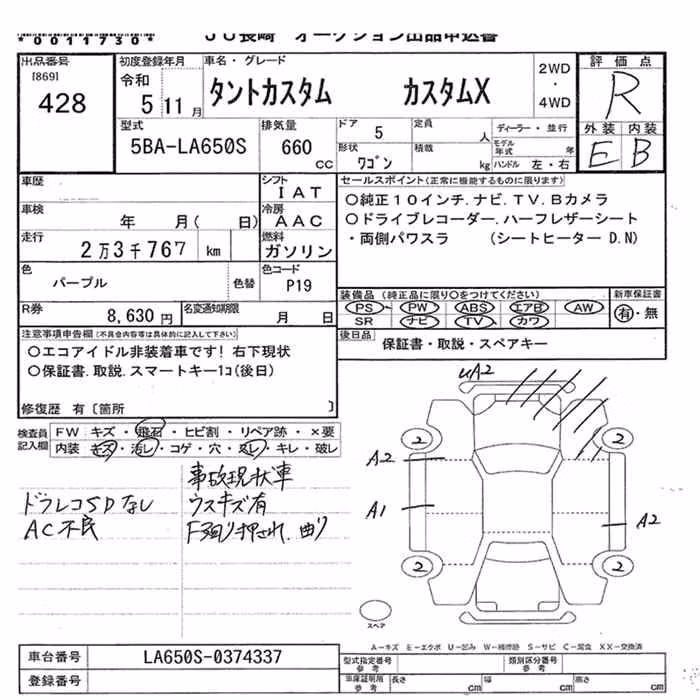 *0011730*
JU長崎 オークション出品申込書
出品番号
[869]
428
初度登録年月
令和
5 11月
車名・グレード
タントカスタム カスタムX
2WD
・
4WD
評価点
R
外装 内装
E B
型式
5BA-LA650S
排気量
660
cc
ドア 5
定員 人
形状
ワゴン
積載
kg
ディーラー・並行
モデル年式 年
ハンドル 左・右
車歴
車検 年 月( 日)
走行
2万3千767 km
色
パープル
色替
シフト
IAT
冷房
AAC
燃料
ガソリン
色コード
P19
セールスポイント(正常に機能するものに限ります)
○純正10インチ.ナビ.TV.Bカメラ
○ドライブレコーダー.ハーフレザーシート
・両側パワスラ (シートヒーター D.N)
R券
8,630円
名変通知期限
月 日
装備品 (純正品に限り○をつけてください)
PS PW ABS エアB AW
SR ナビ TV カワ
新車保証書
有・無
後日品
保証書・取説・スペアキー
注意事項申告欄(不具合内容等は具体的に記入して下さい)
○エコアイドル非装着車です! 右下現状
○保証書.取説.スマートキー1コ(後日)
修復歴 有〔箇所 〕
検査員記入欄
FW キズ・飛石・ヒビ割・リペア跡・×要
内装 キズ・汚レ・コゲ・穴・スレ・キレ・破レ
事故現状車
ドラレコSDなし
ウスキズ有
AC不良
F廻り押され、曲り
uA2
2 2
A2
A1
A2
2 2
スペア
A-キズ E-エクボ U-凹み W-補修跡 S-サビ C-腐食 XX-交換済
車台番号
LA650S-0374337
登録番号
型式指定番号
参考
類別区分番号
参考
車庫証明用
参考
長さ cm
幅 cm
高さ cm